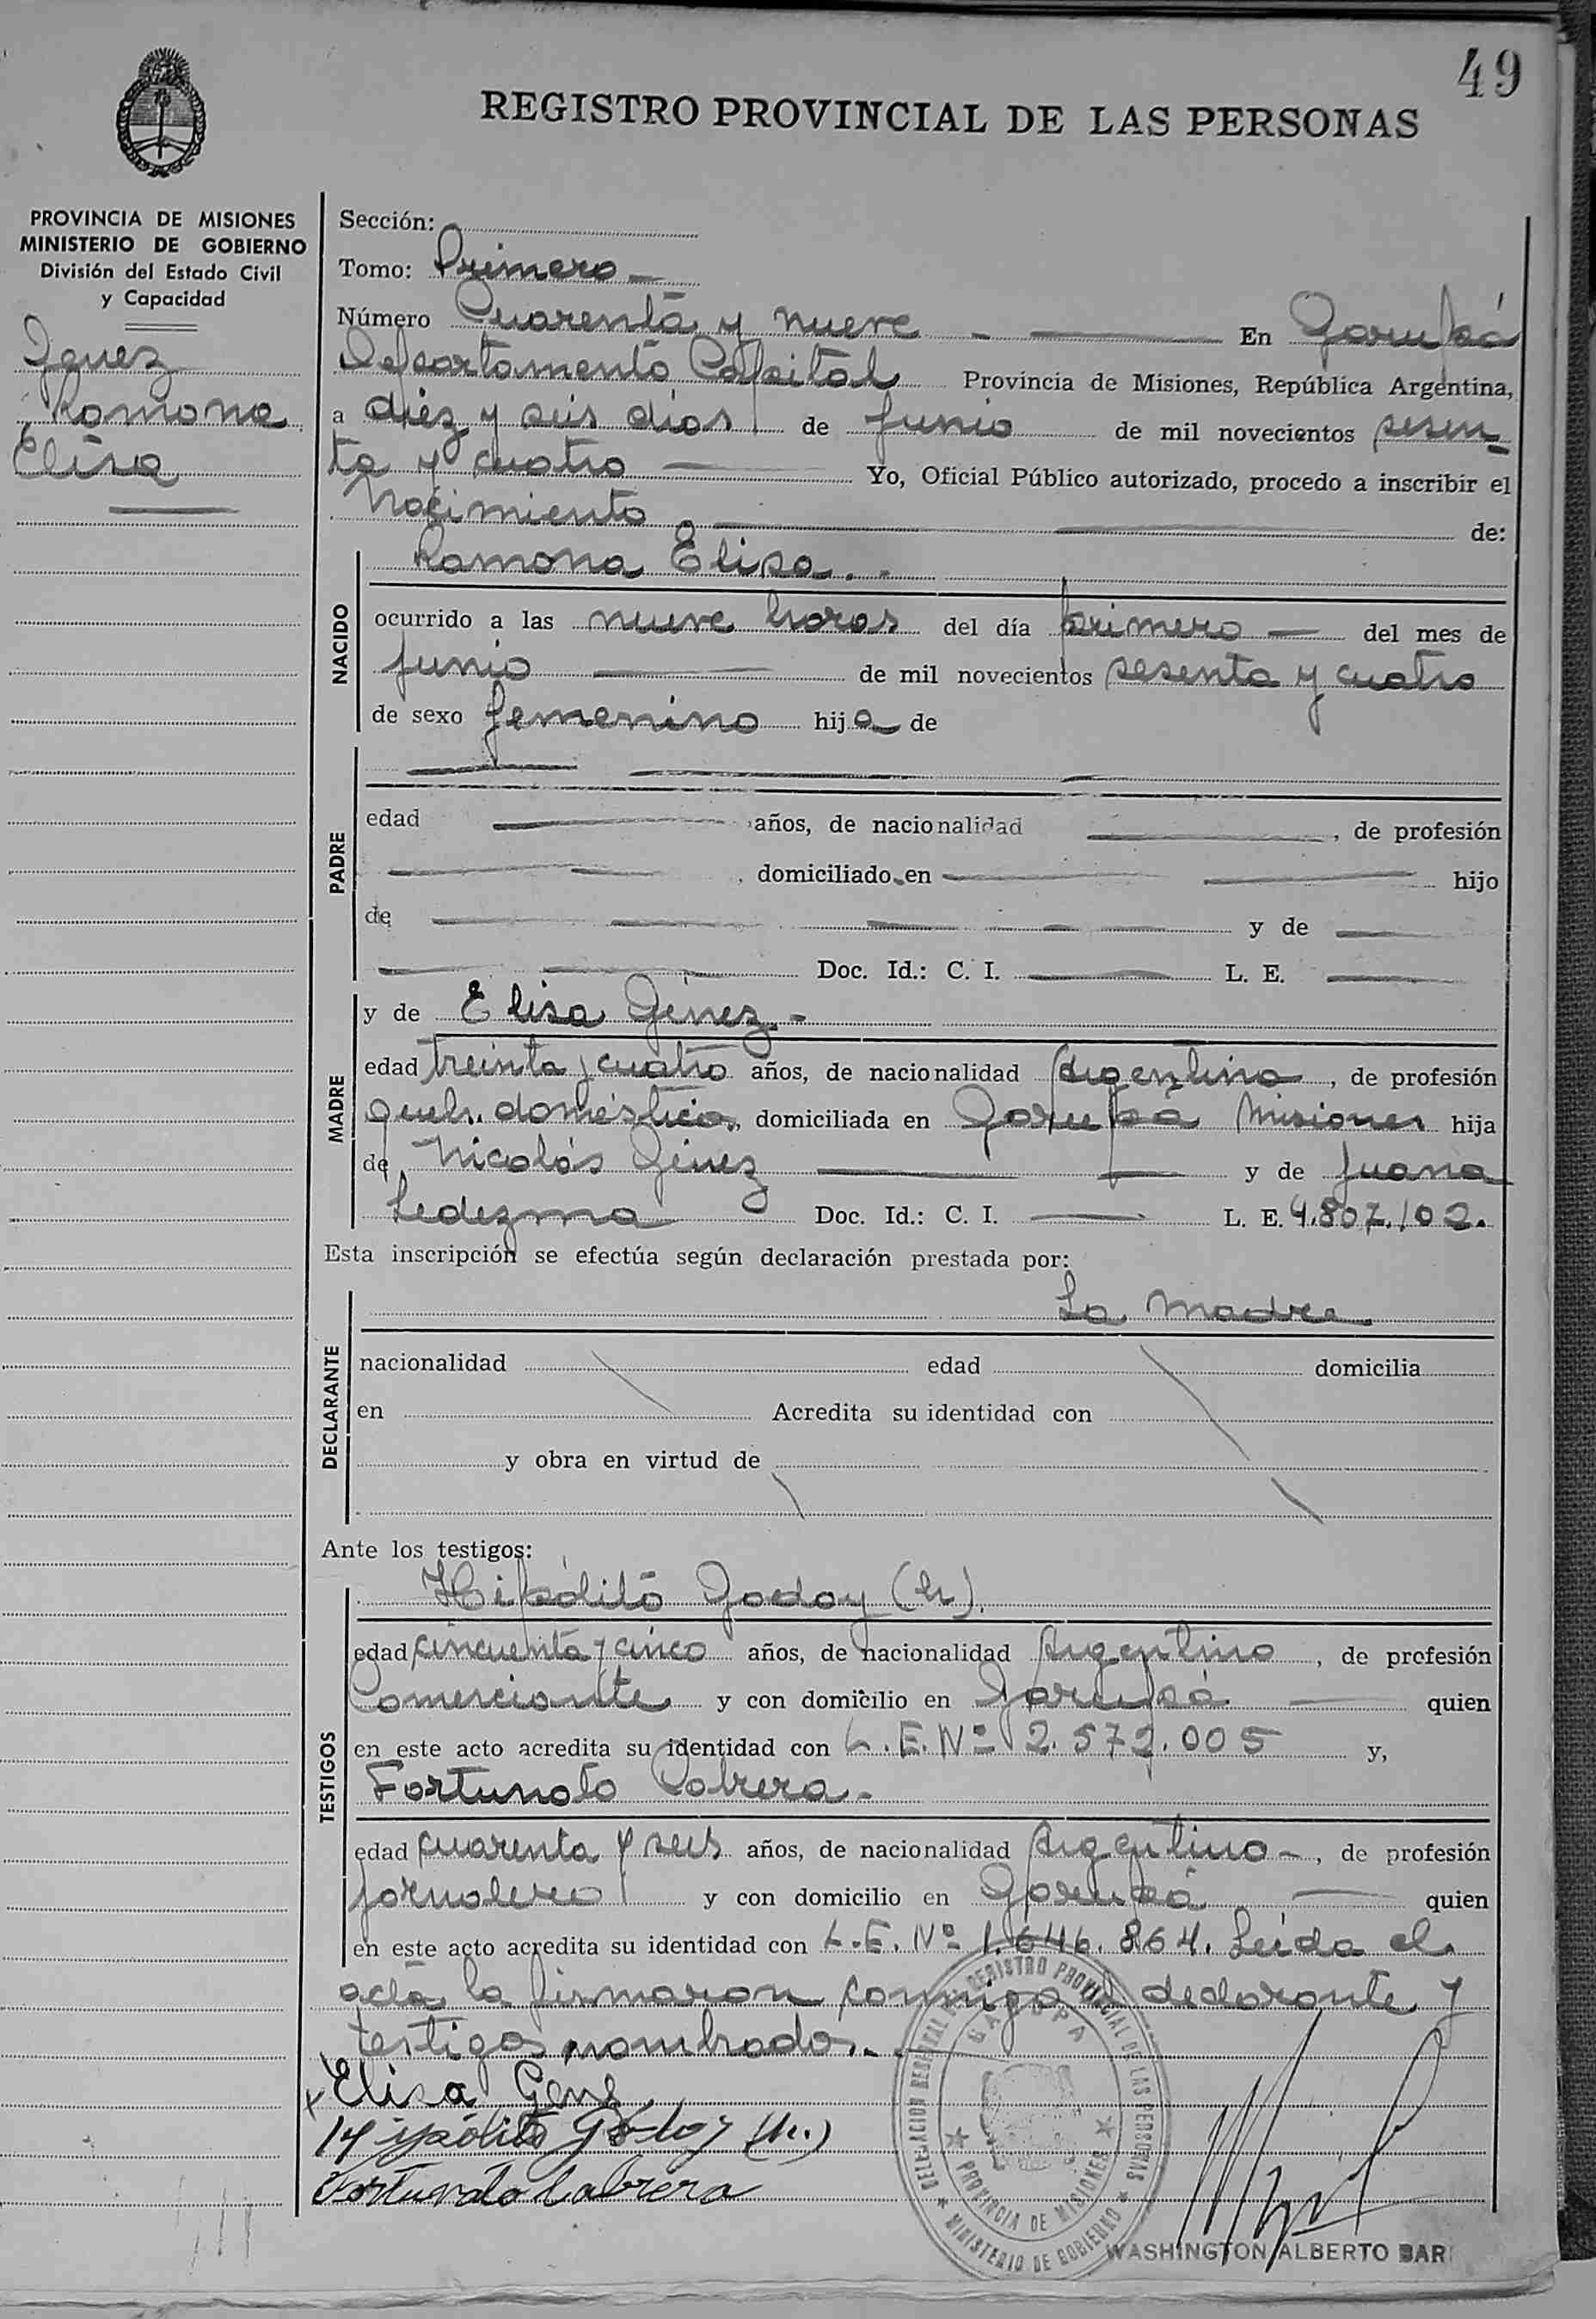 49
REGISTRO PROVINCIAL DE LAS PERSONAS
PROVINCIA DE MISIONES
MINISTERIO DE GOBIERNO
División del Estado Civil
y Capacidad
Genez
Ramona
Elisa
Sección:
Tomo: Primero
Número Cuarenta y nueve En Garupá
Departamento Capital Provincia de Misiones, República Argentina,
a diez y seis dias de Junio de mil novecientos sesen
ta y cuatro Yo, Oficial Público autorizado, procedo a inscribir el
Nacimiento de:
NACIDO
Ramona Elisa.
ocurrido a las nueve horas del día primero del mes de
Junio de mil novecientos sesenta y cuatro
de sexo femenino hija de
PADRE
edad años, de nacionalidad , de profesión
domiciliado en hijo
de y de
Doc. Id.: C. I. L. E.
MADRE
y de Elisa Génez.-
edad treinta y cuatro años, de nacionalidad Argentina, de profesión
queh. domésticos, domiciliada en Garupá Misiones hija
de Nicolás Génez y de Juana
Ledezma Doc. Id.: C. I. L. E. 4.807.102.
Esta inscripción se efectúa según declaración prestada por:
DECLARANTE
La madre
nacionalidad edad domicilia
en Acredita su identidad con
y obra en virtud de
Ante los testigos:
TESTIGOS
Hipólito Godoy (h).
edad cincuenta y cinco años, de nacionalidad Argentino, de profesión
Comerciante y con domicilio en Garupá quien
en este acto acredita su identidad con L.E. Nº 2.572.005 y,
Fortunato Cabrera.-
edad cuarenta y seis años, de nacionalidad Argentino-, de profesión
jornalero y con domicilio en Garupá quien
en este acto acredita su identidad con L.E. Nº 1.646.864. Leída el
acta la firmaron conmigo el declarante y
testigos nombrados.-
x Elisa Genez
Hipólito Godoy (h.)
Fortunato Cabrera
REGISTRO PROVINCIAL DE LAS PERSONAS
GARUPA
PROVINCIA DE MISIONES
MINISTERIO DE GOBIERNO
WASHINGTON ALBERTO BAR